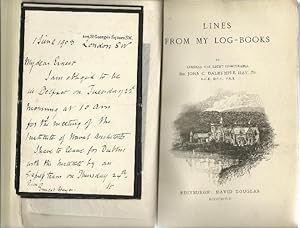 108, St Georges Square, S.W.
1 June 1903
London SW
My dear Ernest
I am obliged to be
in Belfast on Tuesday 23rd
morning at 10 am
for the meeting of the
Institute of Naval Architects
I have to leave for Dublin
with the Institute by an
Express train on Thursday 24th
LINES
FROM MY LOG-BOOKS
BY
ADMIRAL THE RIGHT HONOURABLE
SIR JOHN C. DALRYMPLE HAY, Bt.
EDINBURGH: DAVID DOUGLAS